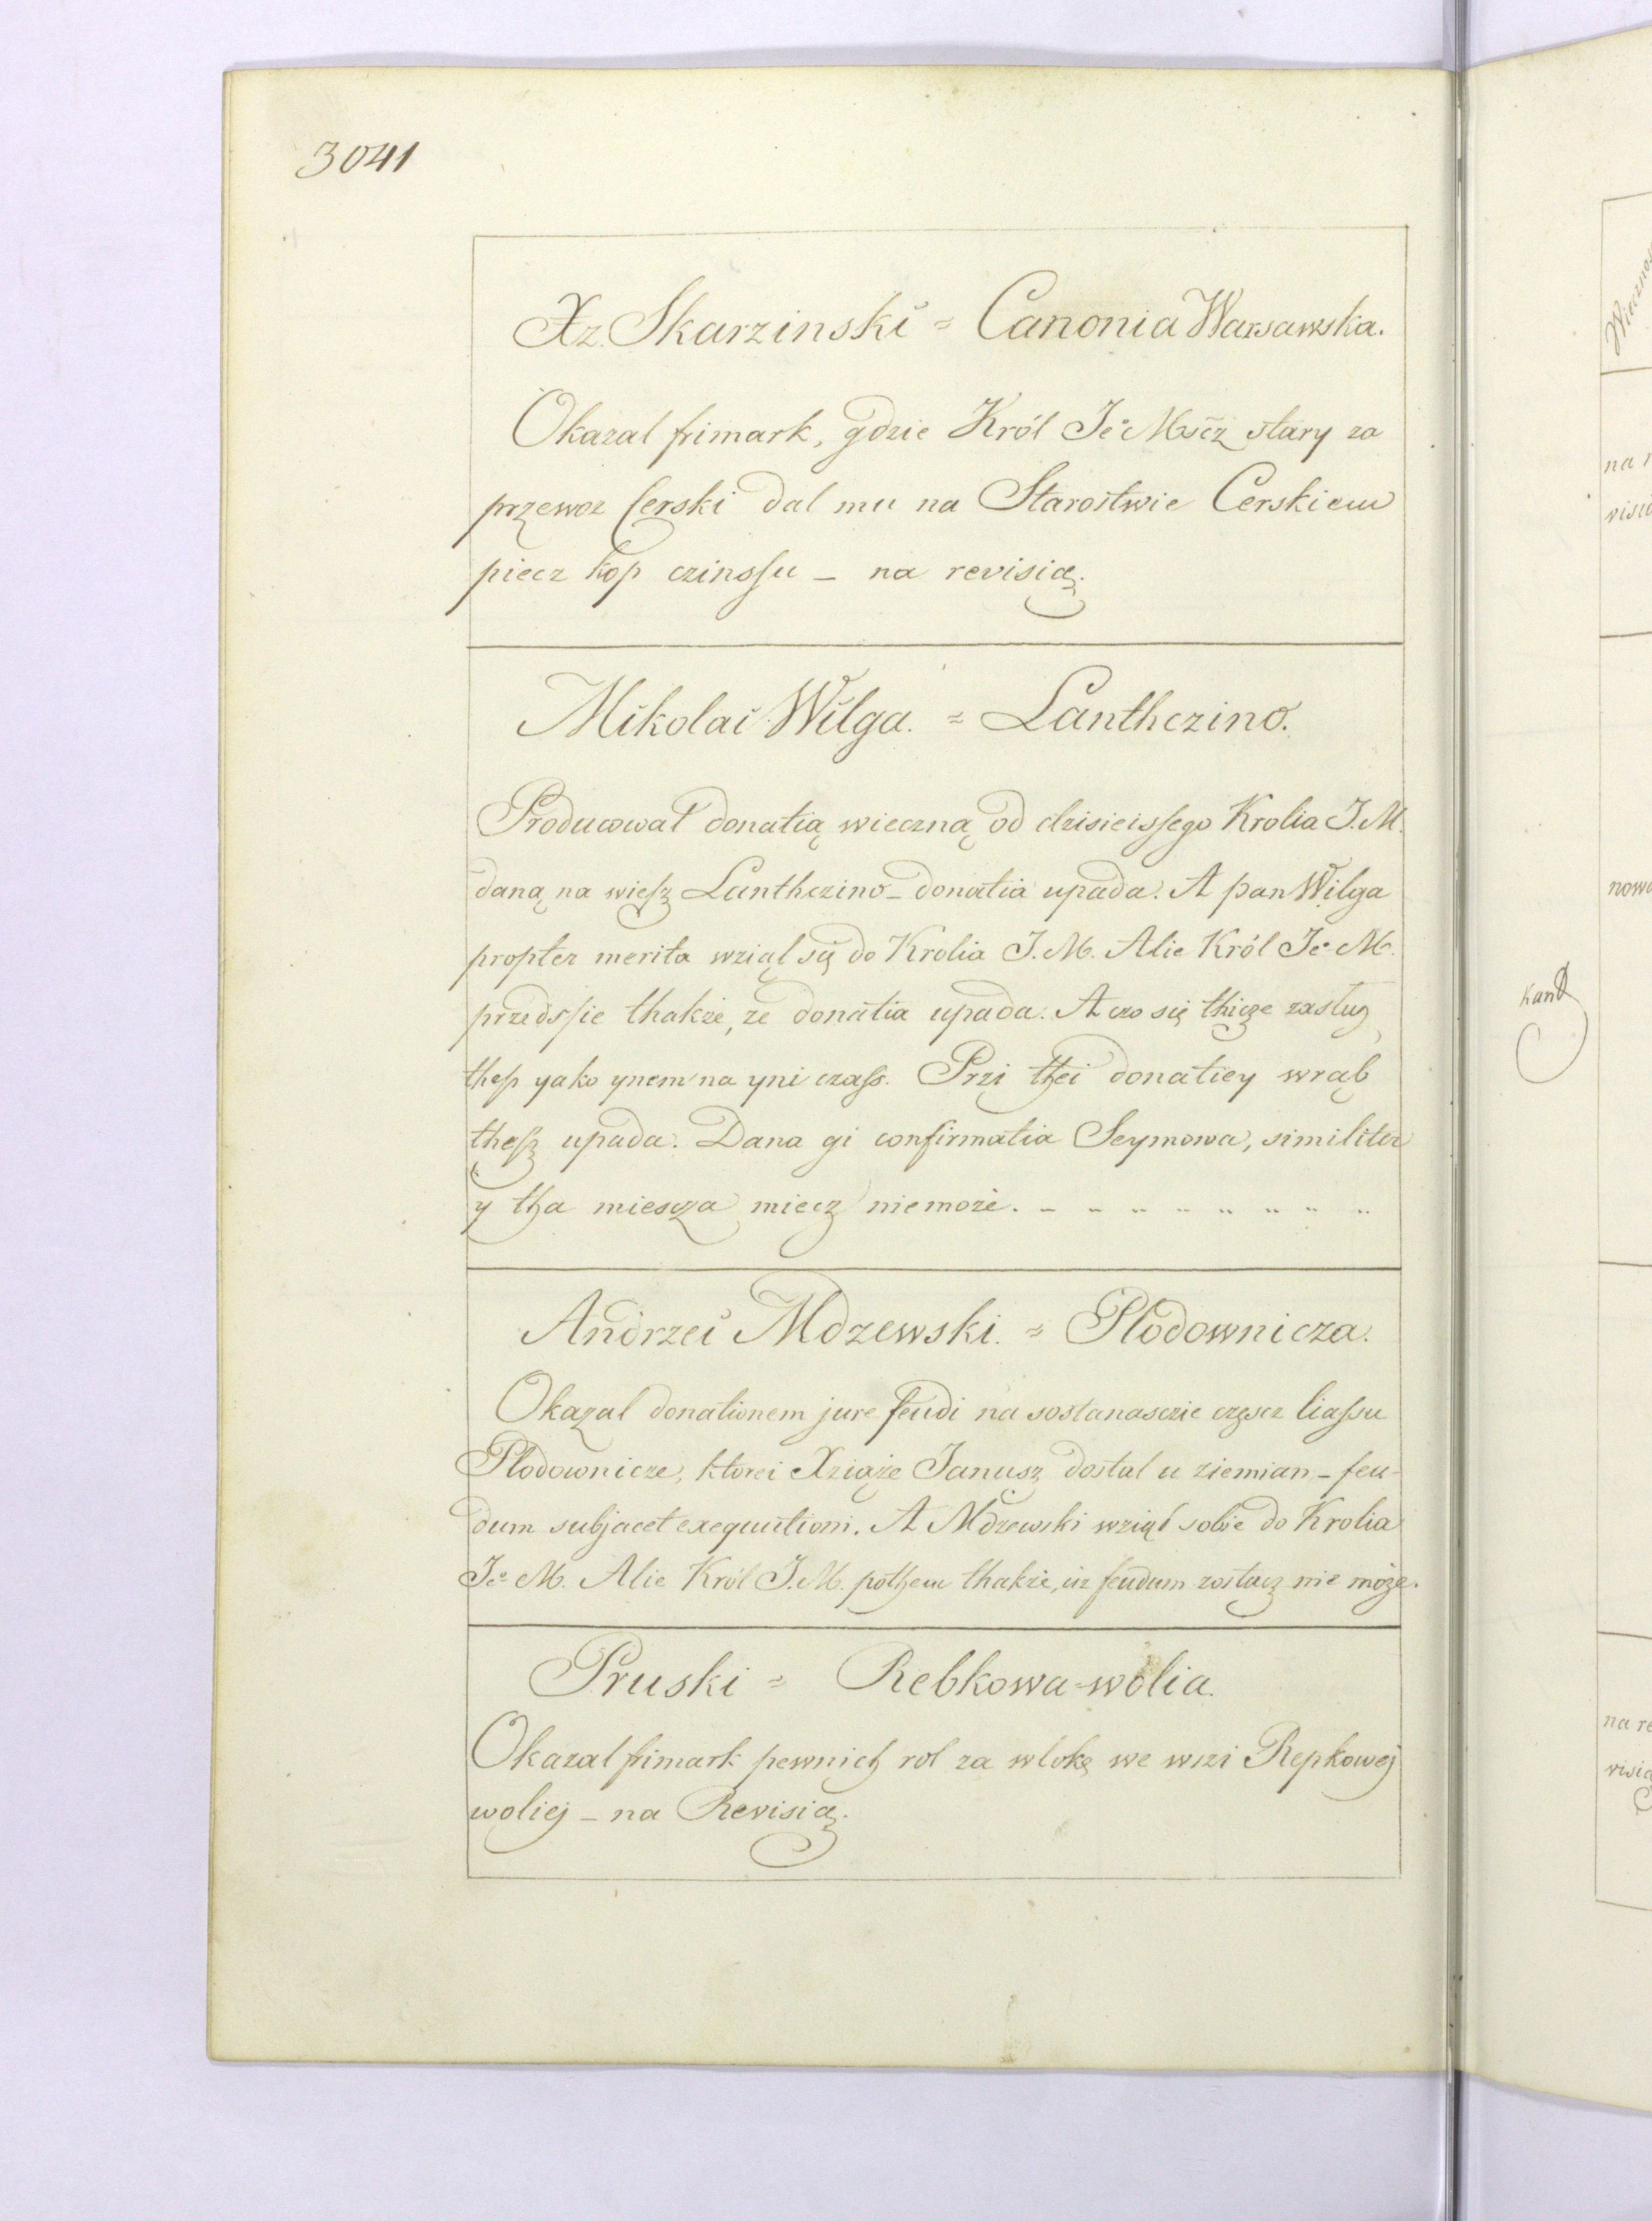 3041
Xz. Skarzinski = Canonia Warsawska.
Okazal frimark, gdzie Król Je° Mścz stary za
przewoz Cerski dal mu na Starostwie Cerskiem
piecz kop czinsſu – na revisią.
Mikolai Wilga. = Lanthczino.
Producowal donatią wieczną od dzisieisſego Krolia J.M.
daną na wieſz Lanthczino – donatia upada. A pan Wilga
propter merita wziąl się do Krolia J. M. Alie Król Je° M.
przedsſie thakże, ze donatia upada. A czo się thicze zaslug
thesz yako ynem na yni czaſs. Przi thei donatiey wrąb
theſz upada. Dana gi confirmatia Seymowa, similiter
y tha miescza miecz niemoże.
Andrzei Mdzewski. = Plodownicza.
Okazal donationem jure feudi na sostanasczie częscz liaſsu
Plodownicze, ktorei Xziąże Janusz dostal u ziemian – feu-
dum subjacet exequutioni. A Mdzewski wziąl sobie do Krolia
Je° M. Alie Król J.M. pothem thakże, iz feudum zostacz nie może.
Pruski = Rebkowa-wolia.
Okazal frimark pewnich rol za wlokę we wszi Repkowej
woliej – na Revisią.
na r
nowo
kand
na re